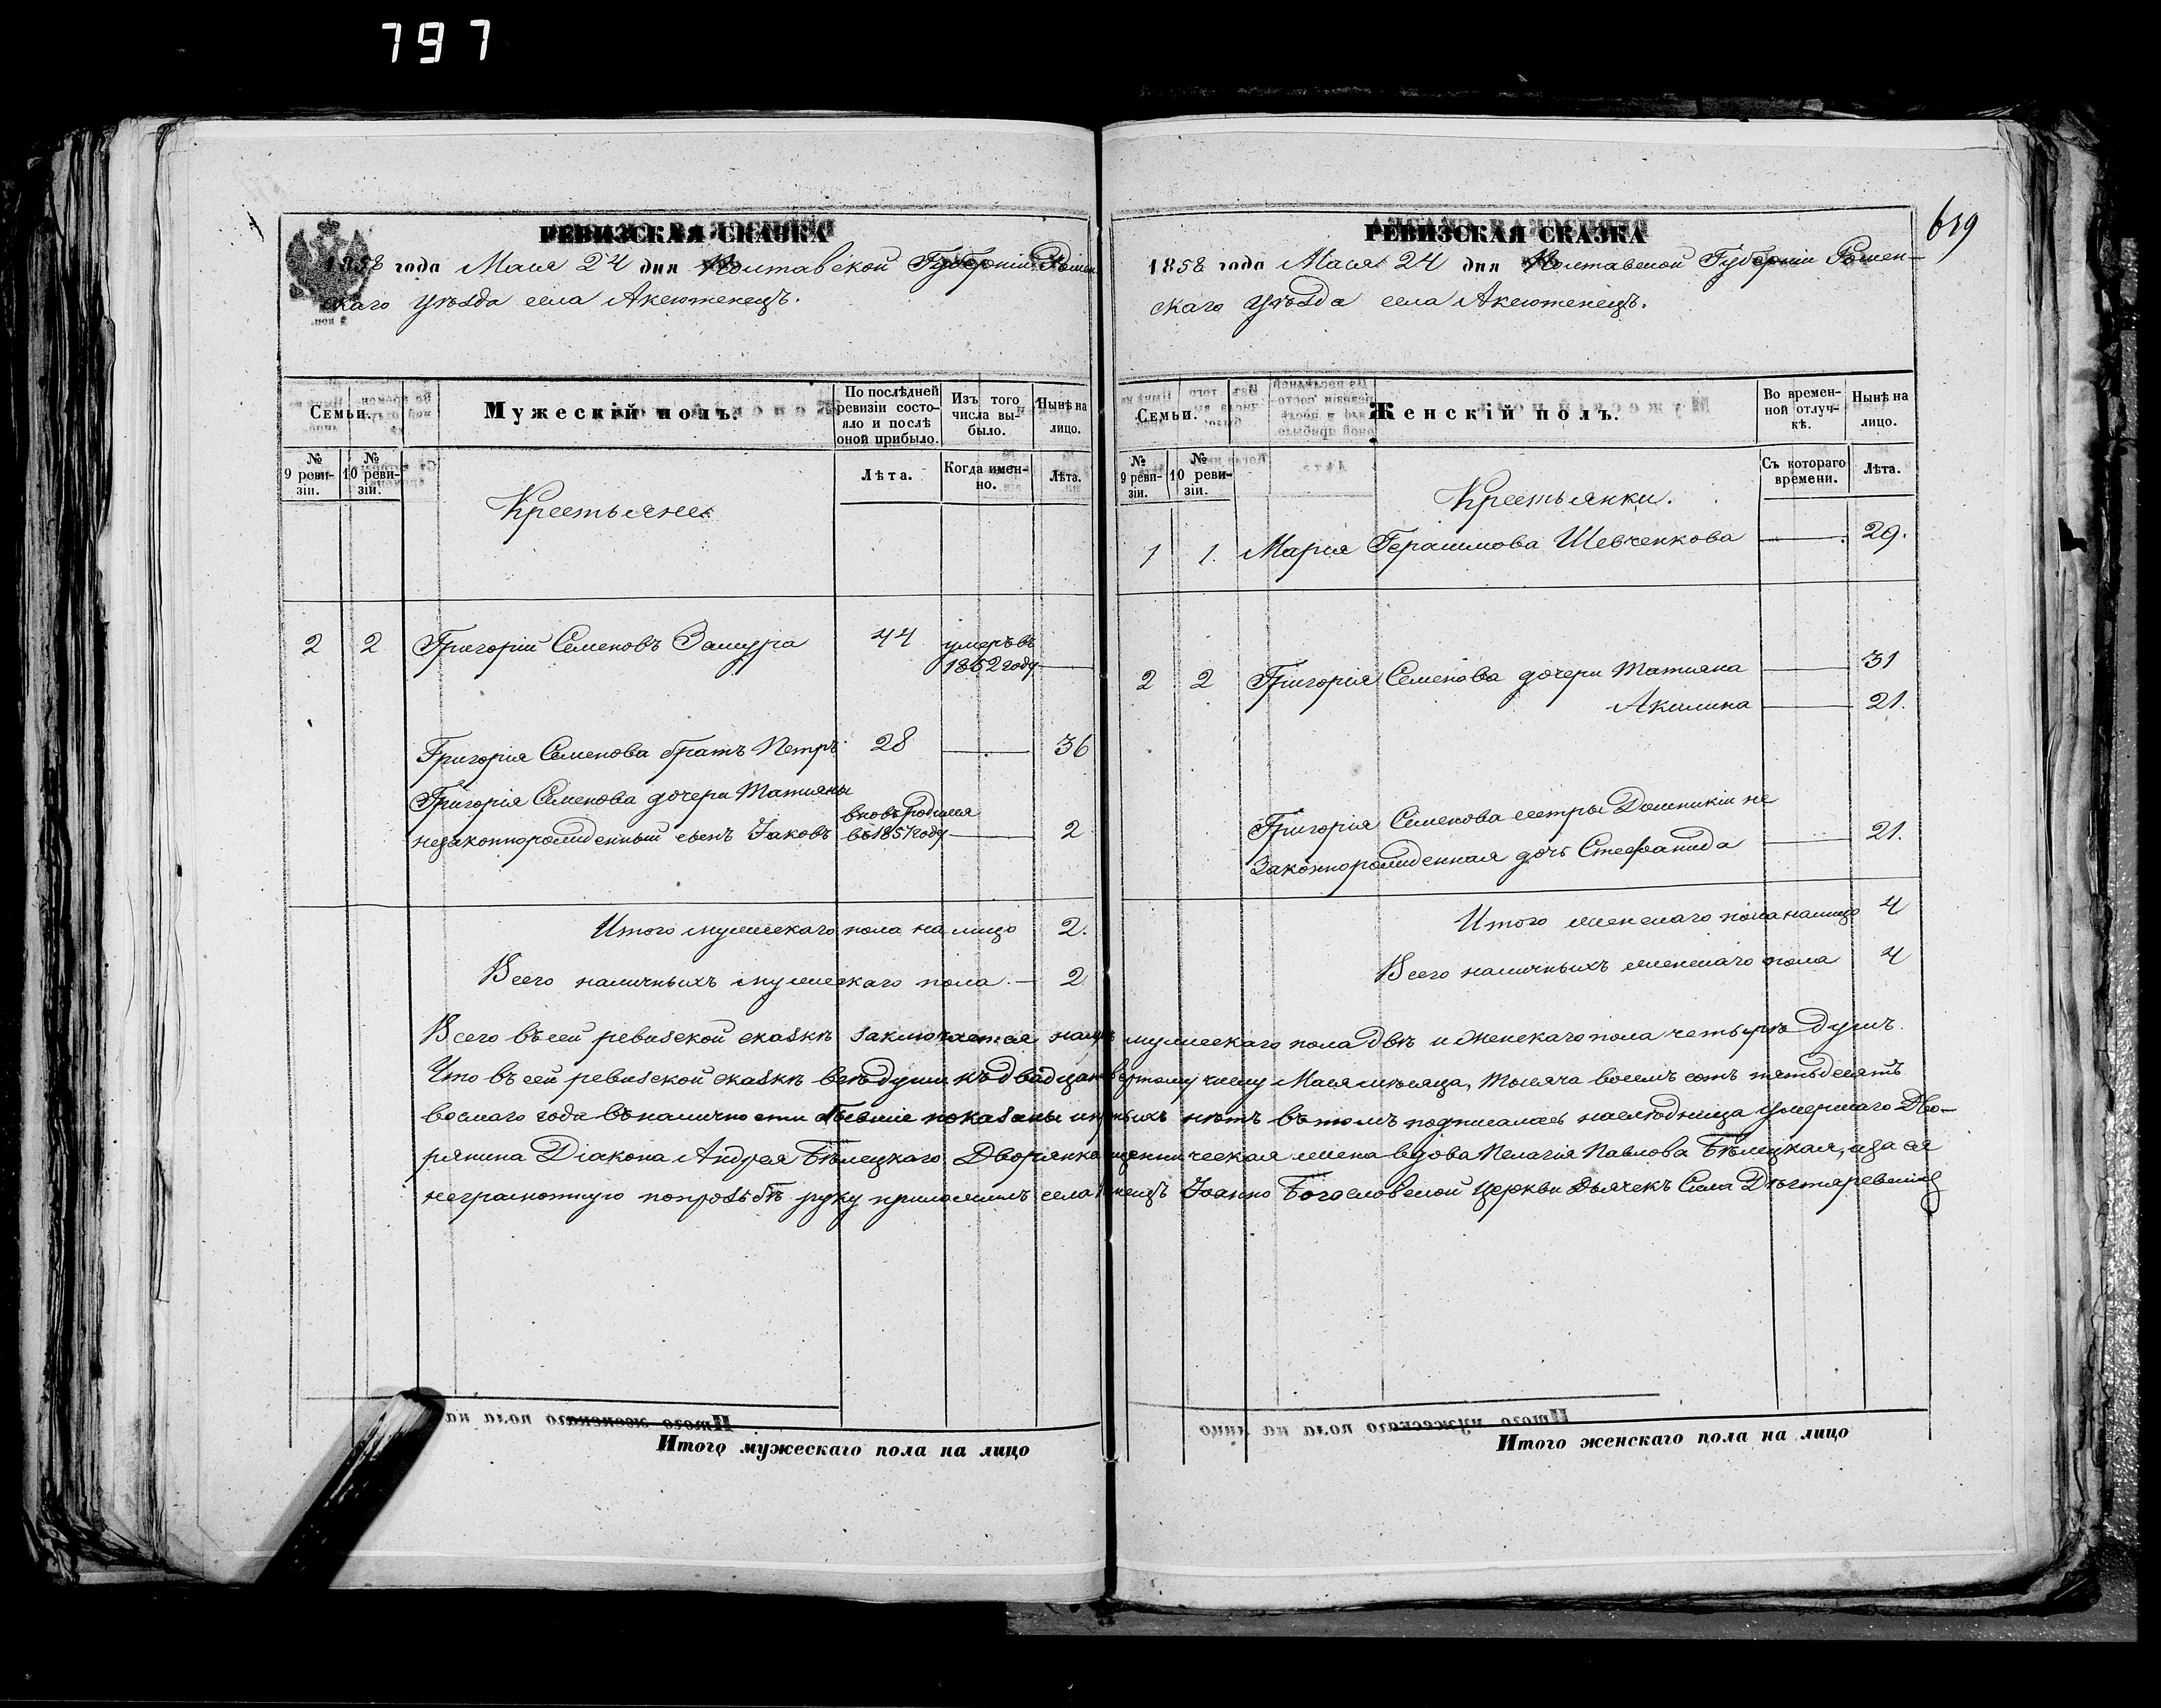 797
РЕВИЗСКАЯ СКАЗКА
1858 года Маія 24 дня Полтавской Губерніи Ромен-
скаго уѣзда села Аксютенецъ.
Семьи.
Мужескій полъ.
По послѣдней ревизіи состояло и послѣ оной прибыло.
Изъ того числа выбыло.
Нынѣ на лицо.
№ 9 ревизіи.
№ 10 ревизіи.
Лѣта.
Когда именно.
Лѣта.
Крестьяне
2 2 Григорій Семеновъ Замура 44 умеръ въ 1852 году
Григорія Семенова братъ Петръ 28 — 36
Григорія Семенова дочери Татияны
незаконнорожденный сынъ Іаковъ вновь родился въ 1857 году — 2
Итого мужескаго пола на лицо 2.
Всего наличныхъ мужескаго пола — 2
Итого мужескаго пола на лицо
619
РЕВИЗСКАЯ СКАЗКА
1858 года Маія 24 дня Полтавской Губерніи Ромен-
скаго уѣзда села Аксютенецъ.
Семьи.
Женскій полъ.
Во временной отлучкѣ.
Нынѣ на лицо.
№ 9 ревизіи.
№ 10 ревизіи.
Съ котораго времени.
Лѣта.
Крестьянки.
1 1. Марія Герасимова Шевченкова — 29.
2 2 Григорія Семенова дочери Татияна — 31
Акилина — 21.
Григорія Семенова сестры Домникіи не
законнорожденная дочь Стефанида — 21.
Итого женскаго пола налицо 4
Всего наличныхъ женскаго пола 4
Всего въ сей ревизской сказкѣ заключается мужескаго пола двѣ и женскаго пола четыре душъ.
Что въ сей ревизской сказкѣ всѣ души къ двадцать четвертому числу Маія мѣсяца, тысяча восемъ сотъ пятьдесятъ
восмаго года въ наличности бывшіе показаны и нѣтъ въ томъ подписалась наслѣдница умершаго Дво-
рянина Діакона Андрея Бѣлецкаго Дворянка жена вдова Пелагія Павлова Бѣлецкая, а за ея
неграмотную по прозьбѣ руку приложилъ села Іоанно Богословской церкви Дьячекъ
Итого женскаго пола на лицо